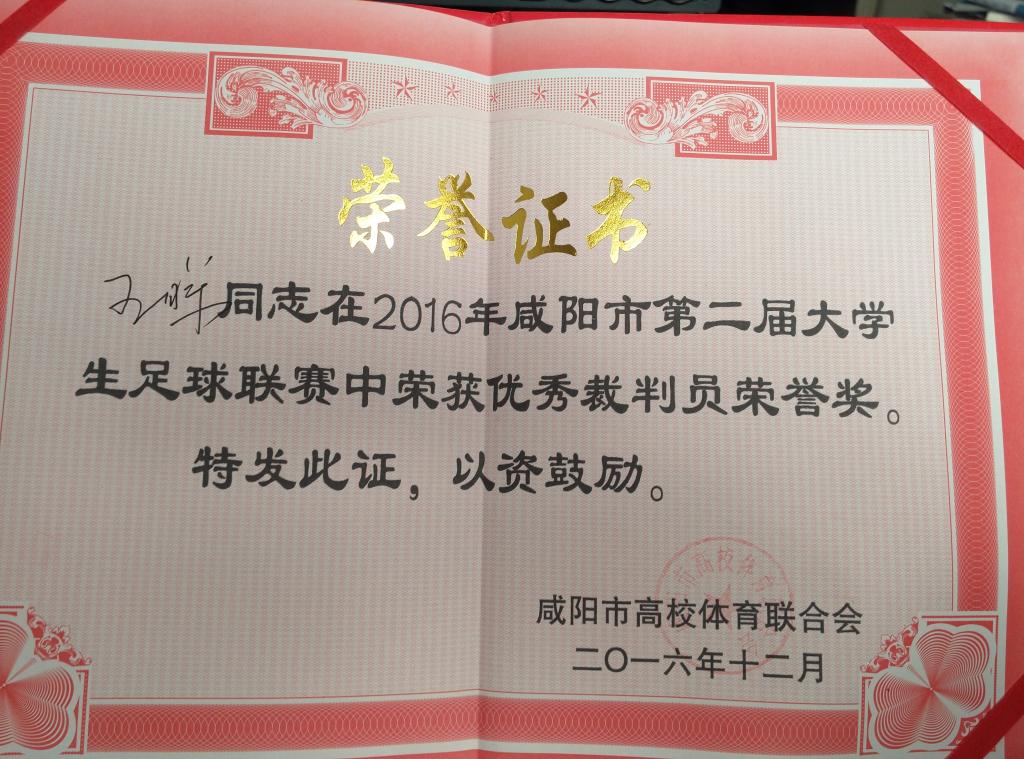 荣誉证书
同志在2016年咸阳市第二届大学
生足球联赛中荣获优秀裁判员荣誉奖。
特发此证，以资鼓励。
咸阳市高校体育联合会
二〇一六年十二月